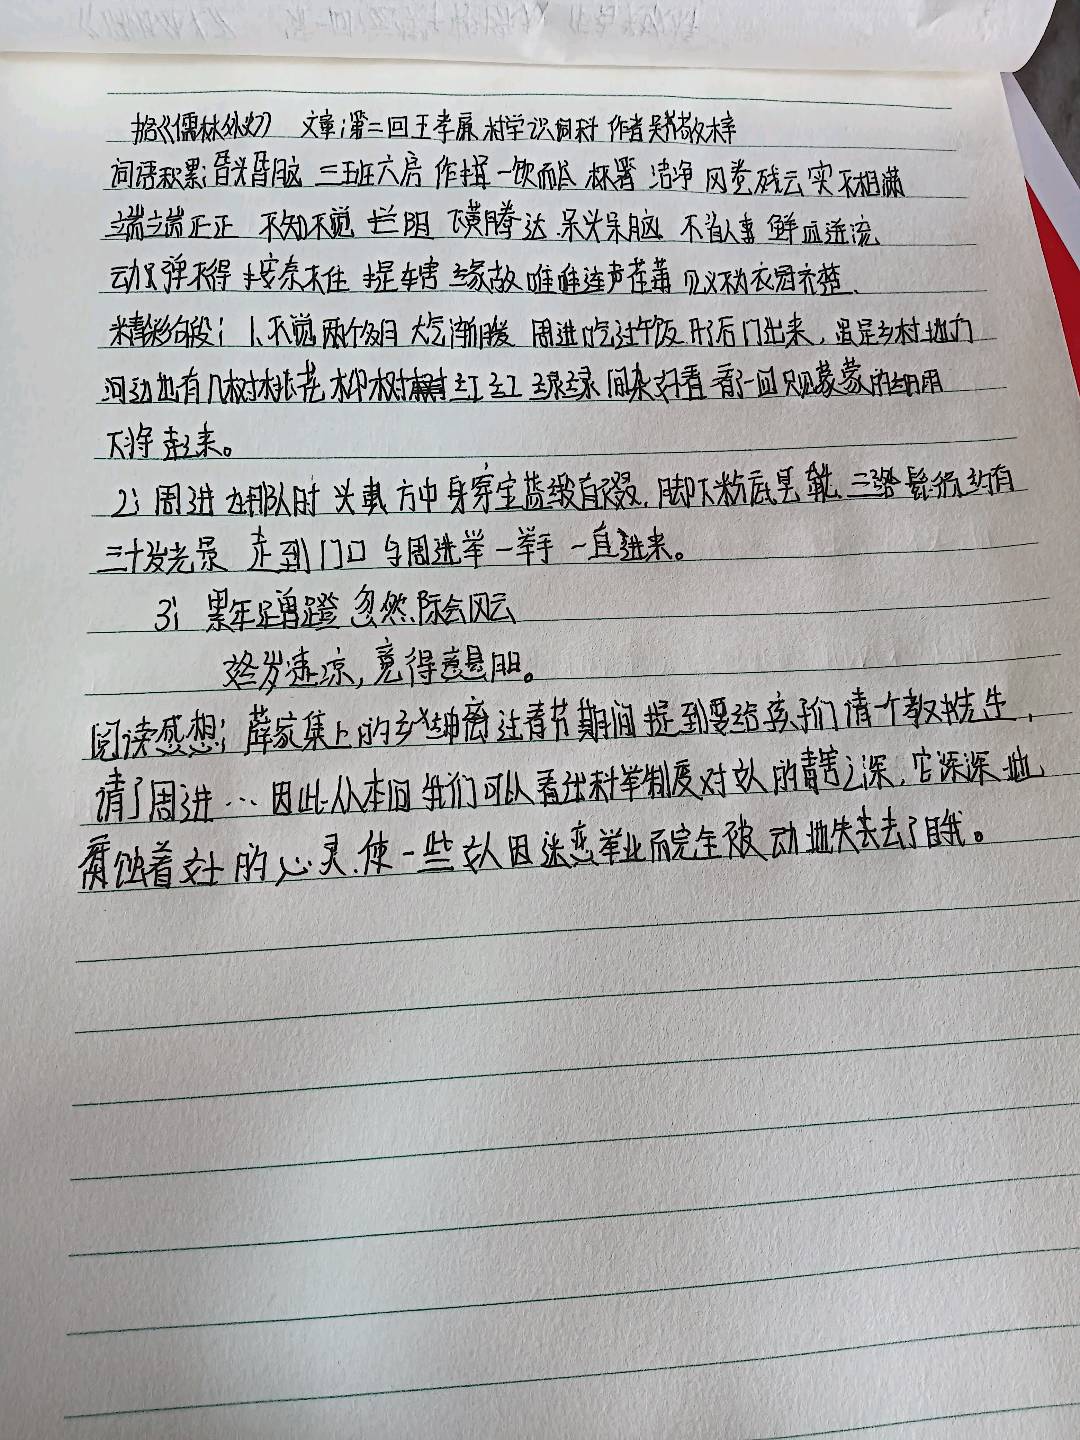 摘《儒林外史》 文章:第二回王孝廉村学识同科 作者吴敬梓
词语积累:昏头昏脑 三班六房 作揖 一饮而尽 杯箸 洁净 风卷残云 实不相瞒
端端正正 不知不觉 拦阻 飞黄腾达 呆头呆脑 不省人事 鲜血迸流
动弹不得 按奈不住 提 缘故 唯唯连声 荼毒 衣冠齐整、
精彩片段:1、不觉两个多月 天气渐暖 周进吃过午饭 开后门出来,虽是乡村地方
河边也有几树桃花 柳树 红红绿绿 间杂好看 看了一回 只见蒙蒙的细雨
下将起来。
2: 周进 在那队时 头戴 方巾 身穿宝蓝缎直裰,脚下粉底皂靴 三绺髭须 约有
三十多光景 走到门口 与周进举一举手 一直进来。
3: 累年蹭蹬 忽然际会风云
终岁凄凉,竟得高悬月旦。
阅读感想:薛家集上的乡绅离过春节期间提到要给孩子们请一个教书先生,
请了周进…因此从本回我们可以看出科举制度对文人的毒害之深,它深深地
腐蚀着文士的心灵,使一些文人因迷恋举业而完全被动地失去了自我。